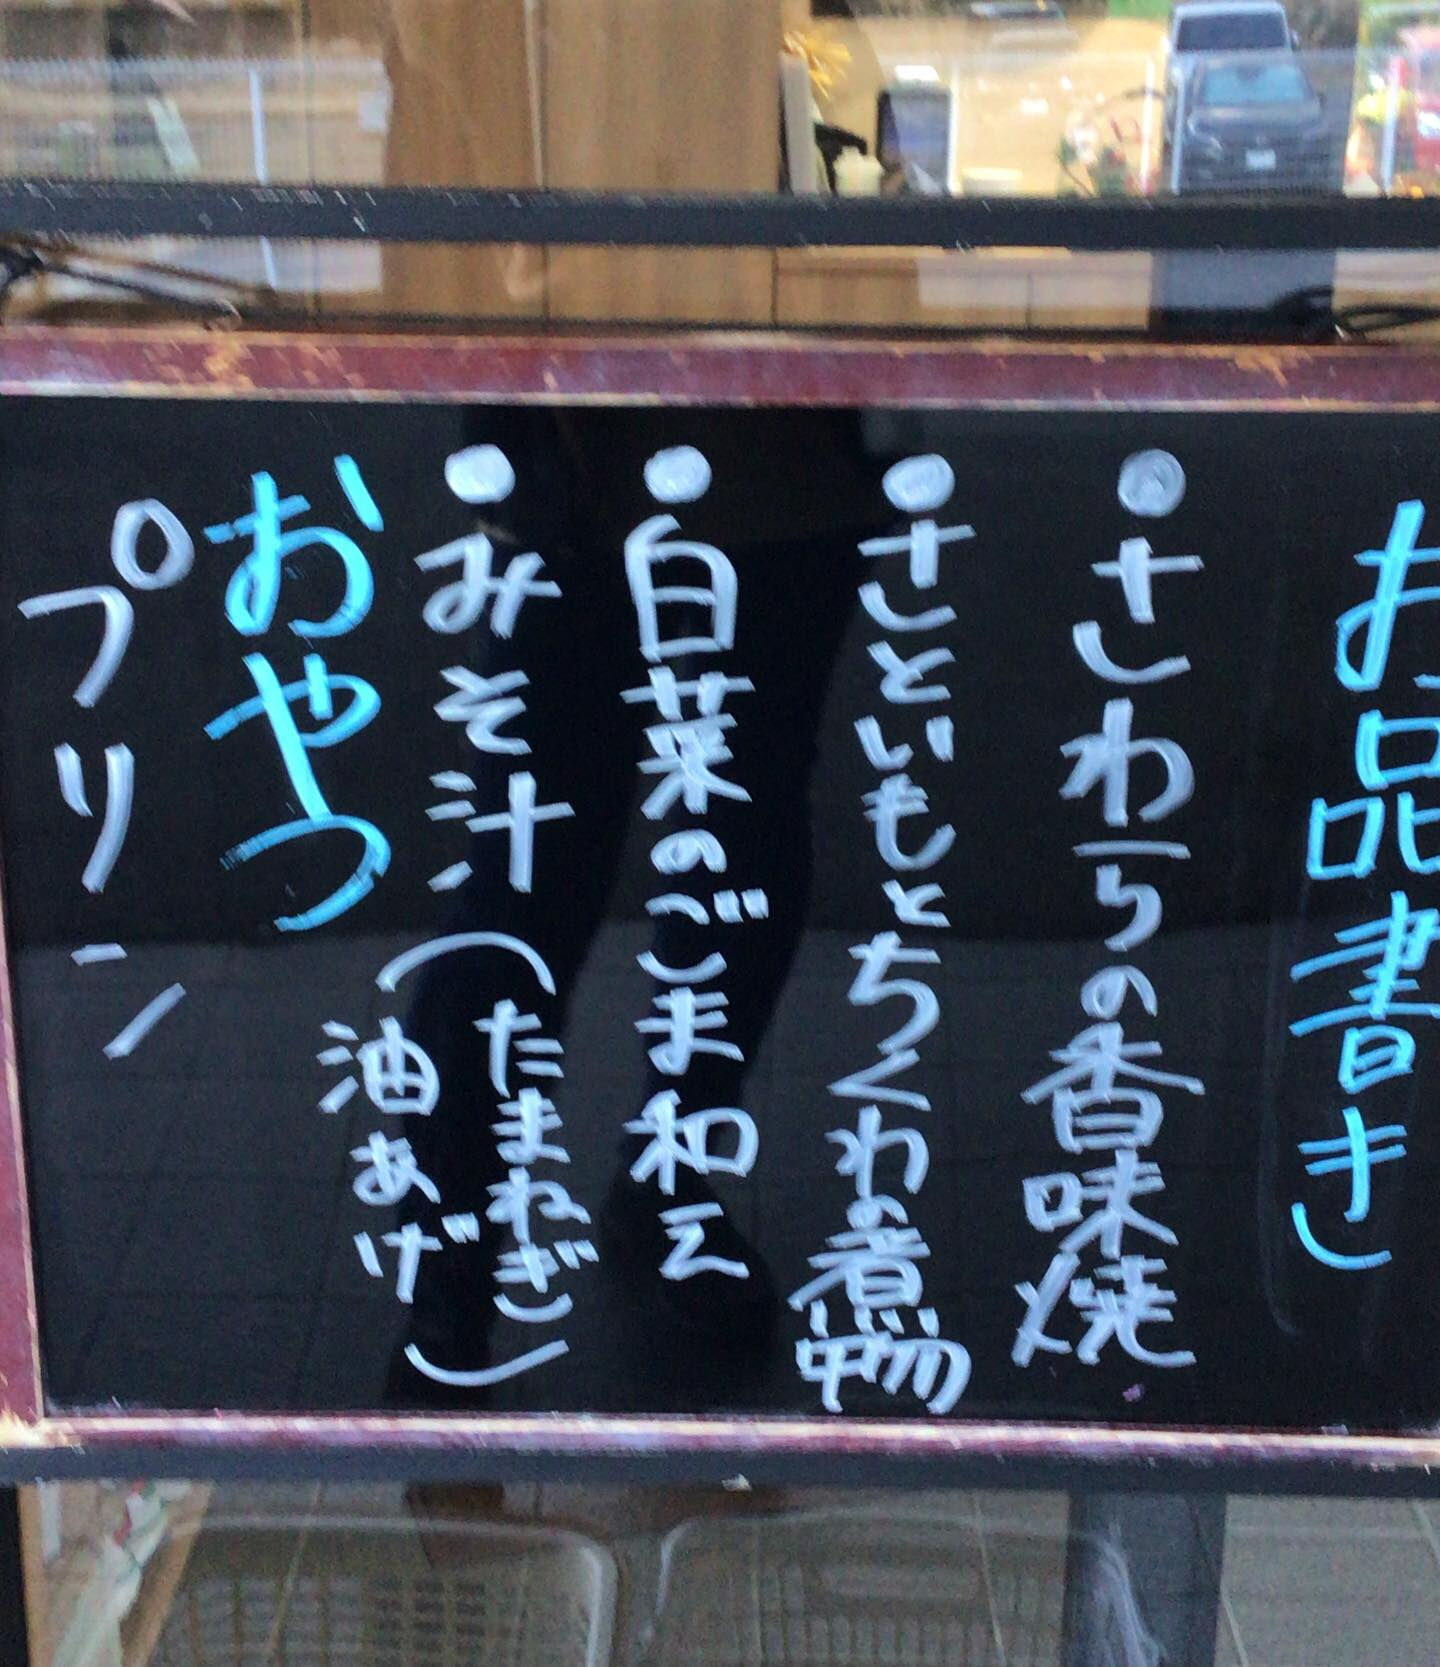 お品書き
●さわらの香味焼
●さといもとちくわの煮物
●白菜のごま和え
●みそ汁(たまねぎ
油あげ)
おやつ
プリン